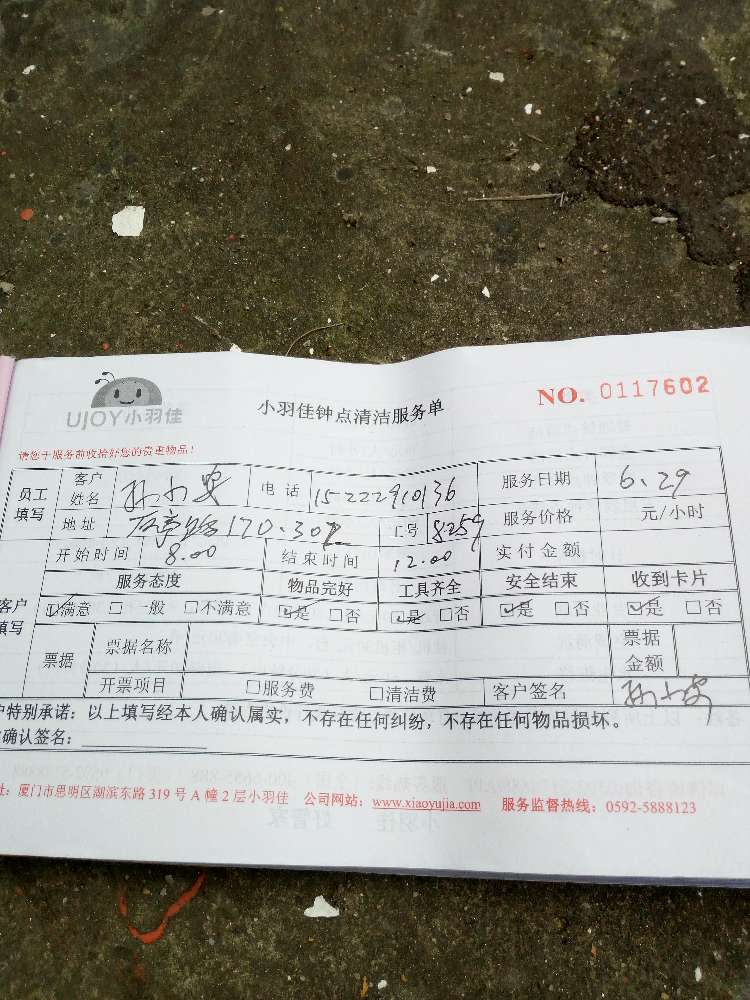 UJOY小羽佳
小羽佳钟点清洁服务单
NO. 0117602
请您于服务前收拾好您的贵重物品!
员工填写 客户姓名 孙小安 电话 15222910136 服务日期 6.29
地址 170.302 工号 8259 服务价格 元/小时
开始时间 8.00 结束时间 12.00 实付金额
客户填写 服务态度 物品完好 工具齐全 安全结束 收到卡片
☑满意 □一般 □不满意 ☑是 □否 ☑是 □否 ☑是 □否 ☑是 □否
票据 票据名称 票据金额
开票项目 □服务费 □清洁费 客户签名 孙小安
户特别承诺:以上填写经本人确认属实,不存在任何纠纷,不存在任何物品损坏。
确认签名:
址:厦门市思明区湖滨东路 319 号 A 幢 2 层小羽佳 公司网站:www.xiaoyujia.com 服务监督热线:0592-5888123